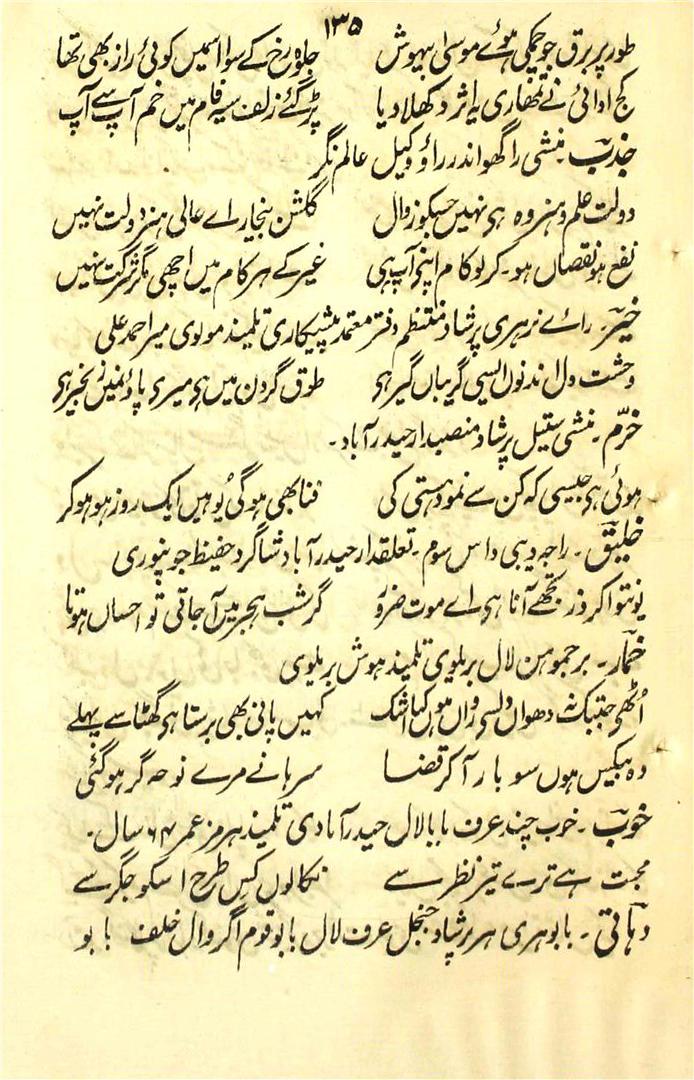 ۱۳۵
طور پر برق جو چمکی ہوئے موسیٰ بیہوش جلوۂ رخ کے سوا اسمیں کوئی راز بھی تھا
کج ادائی نے تمھاری یہ اثر دکھلا دیا پڑ گئے زلف سیہ فام میں خم آپ سے آپ
جذب۔ منشی راگھواندر راؤ وکیل عالم نگر
دولت علم و ہنر وہ ہی نہیں جسکو زوال گلشن بنجار اے عالی ہنر دولت نہیں
نفع ہو نقصاں ہو۔ کر لو کام اپنے آپ ہی غیر کے ہر کام میں اچھی مگر شرکت نہیں
خیر۔ رائے نرہری پرشاد منتظم دفتر معتمد پیشکاری تلمیذ مولوی میر احمد علی
وحشت دل اندنوں ایسی گریباں گیر ہی طوق گردن میں ہی میری پاؤنمیں زنجیر ہی
خرّم۔ منشی ستیل پرشاد منصبدار حیدرآباد۔
ہوئی ہی جیسی کہ کن سے نمود ہستی کی فنا بھی ہوگی یُوہیں ایک روز ہو ہو کر
خلیق۔ راجہ دیبی داس سوم۔ تعلقدار حیدرآباد شاگرد حفیظ جونپوری
یونتو اکروز تجھے آنا ہی اے موت ضرور گر شب ہجر میں آجاتی تو احساں ہوتا
خمار۔ برجموہن لال بریلوی تلمیذ ہوش بریلوی
اُٹھی جبتک نہ دھواں دلسی رواں ہوں کیا اشک کہیں پانی بھی برستا ہی گھٹا سے پہلے
وہ بیکس ہوں سو بار آکر قضا سرہانے مرے نوحہ گر ہوگئی
خوب۔ خوب چند عرف بابا لال حیدرآبادی تلمیذ ہرمز عمر ۶۴ سال۔
محبت ہے ترے تیر نظر سے نکالوں کس طرح اسکو جگر سے
دہاتی۔ بابو ہری ہر پرشاد جنجل عرف لال بابو قوم اگروال خلف بابو